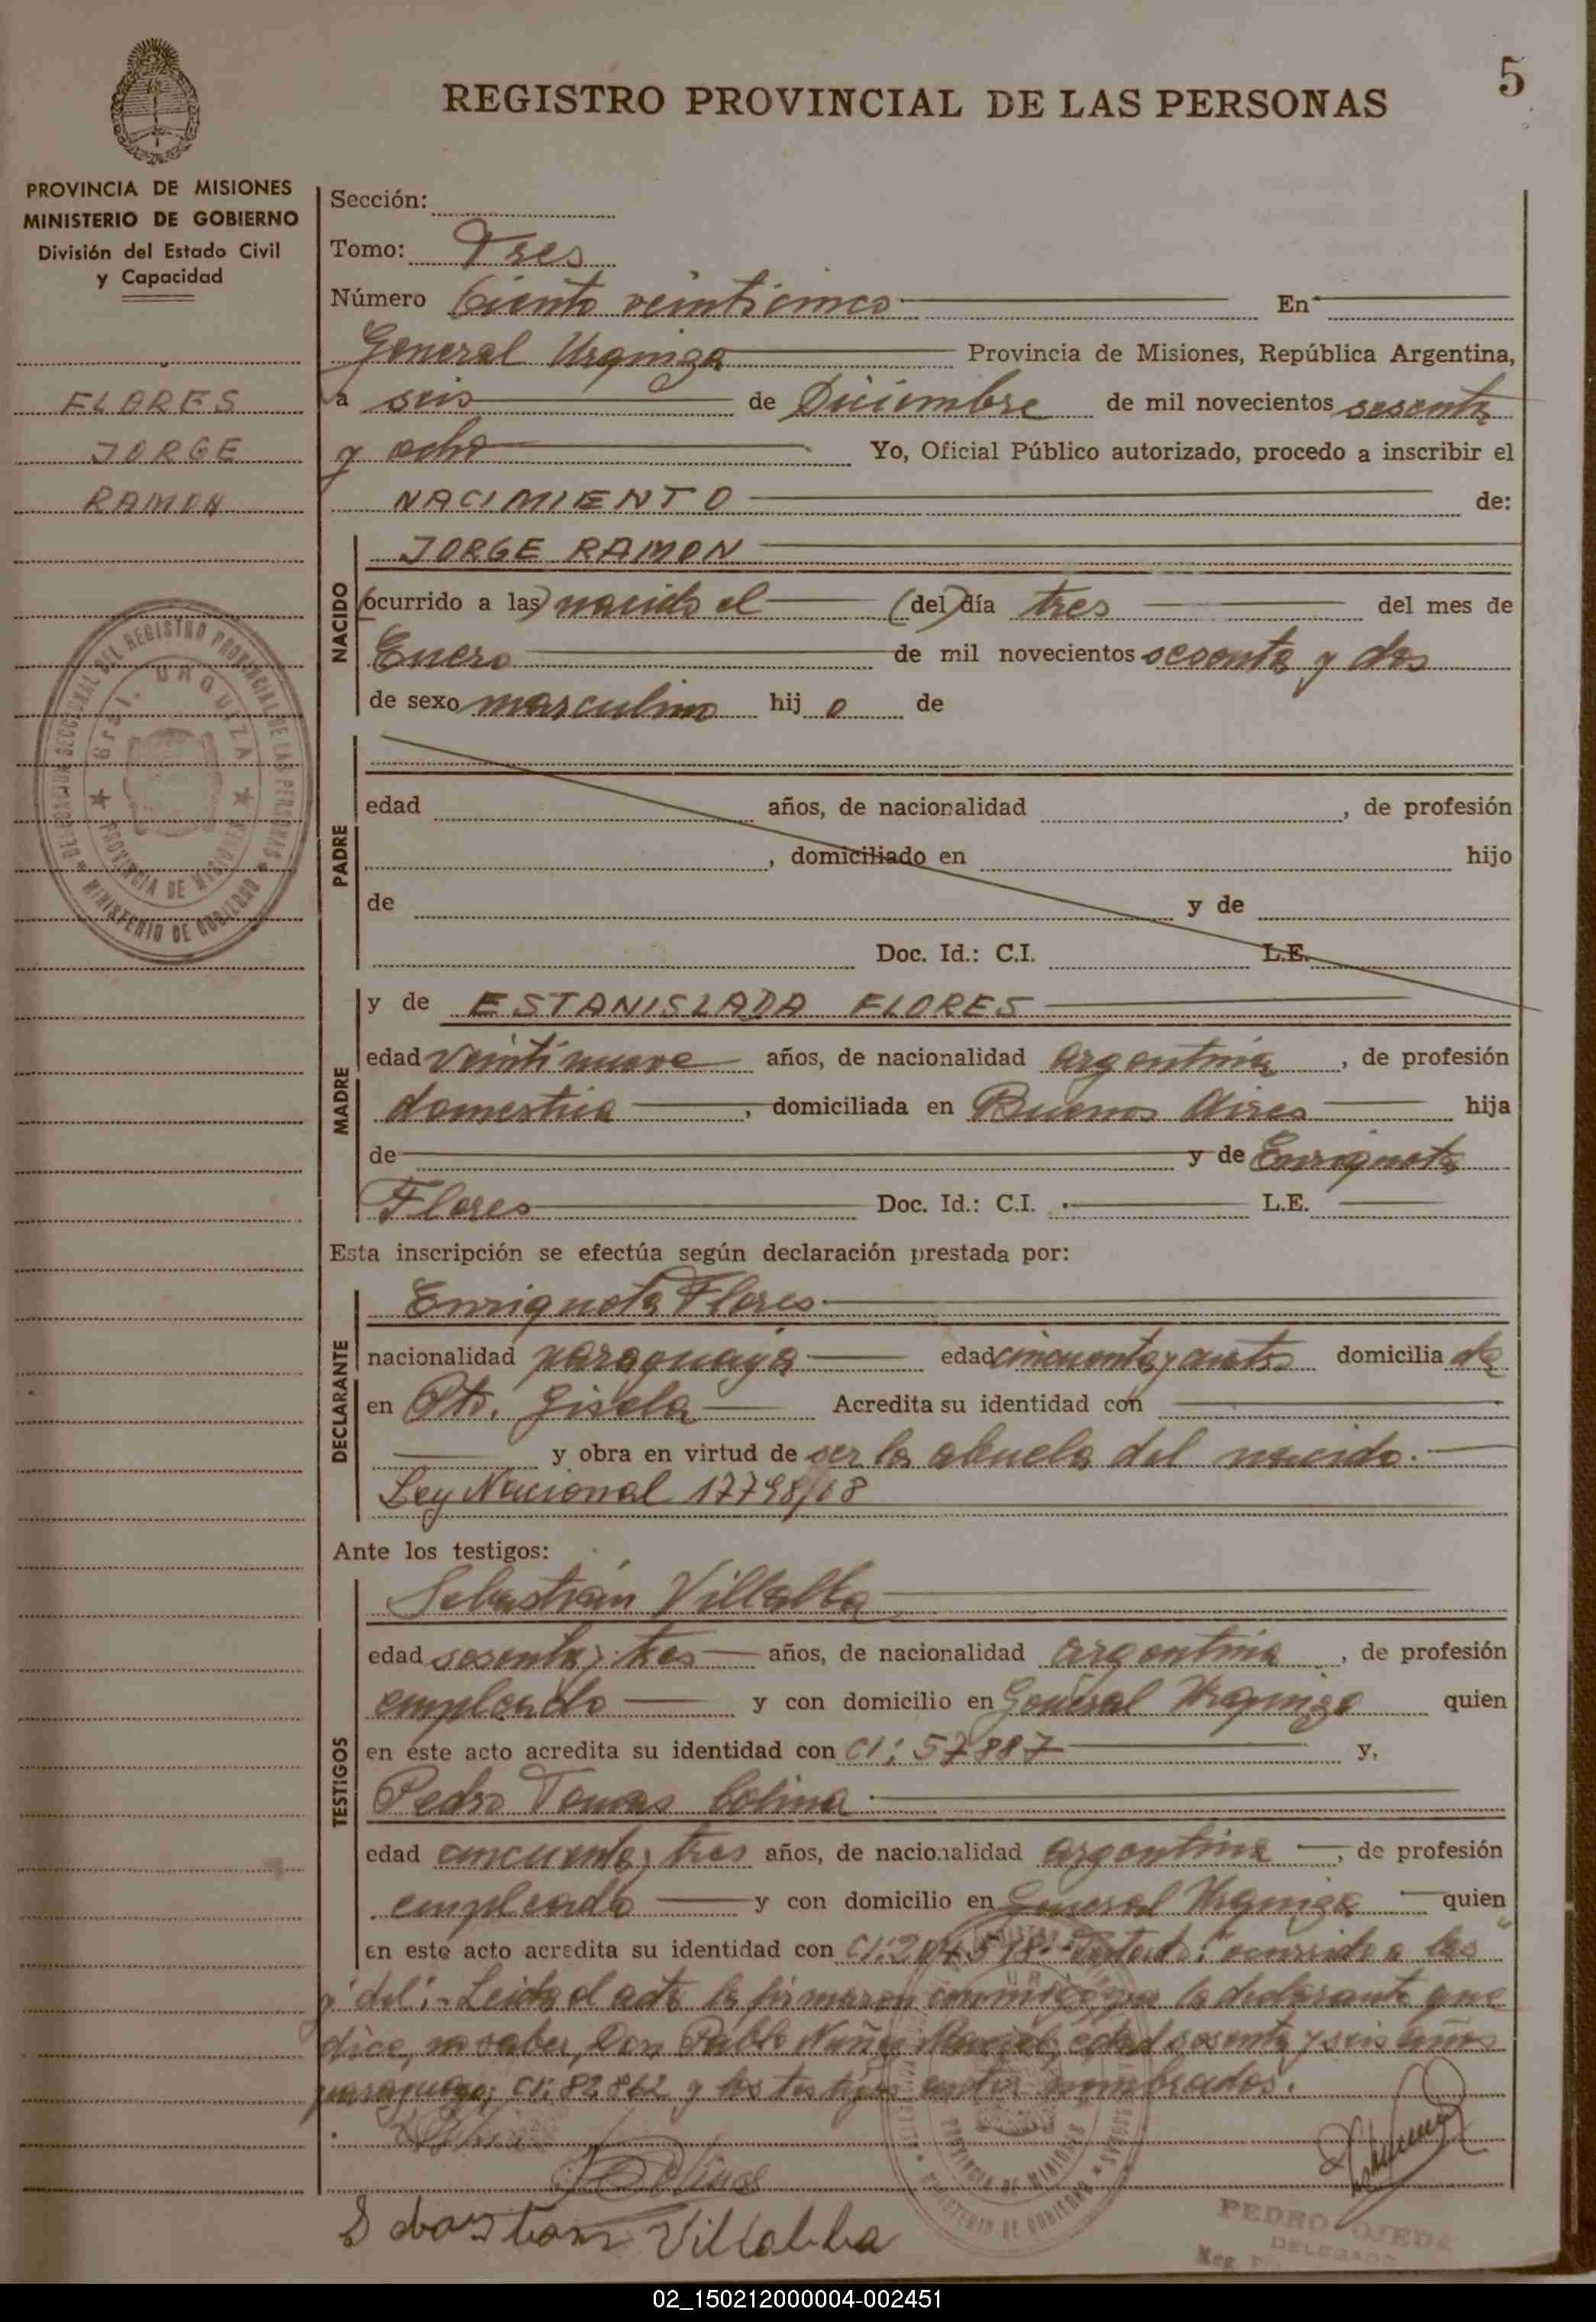 5
REGISTRO PROVINCIAL DE LAS PERSONAS
PROVINCIA DE MISIONES
MINISTERIO DE GOBIERNO
División del Estado Civil
y Capacidad
FLORES
JORGE
RAMON
Sección:
Tomo: Tres
Número Ciento veinticinco En
General Urquiza Provincia de Misiones, República Argentina,
a seis de Diciembre de mil novecientos sesenta
y ocho Yo, Oficial Público autorizado, procedo a inscribir el
NACIMIENTO de:
NACIDO
JORGE RAMON
(ocurrido a las) nacido el (del) día tres del mes de
Enero de mil novecientos sesenta y dos
de sexo masculino hij o de
PADRE
edad años, de nacionalidad , de profesión
, domiciliado en hijo
de y de
Doc. Id.: C.I. L.E.
MADRE
y de ESTANISLADA FLORES
edad veintinueve años, de nacionalidad argentina , de profesión
domestica , domiciliada en Buenos Aires hija
de y de Enriqueta
Flores Doc. Id.: C.I. L.E.
Esta inscripción se efectúa según declaración prestada por:
DECLARANTE
Enriqueta Flores
nacionalidad paraguaya edad cincuenta y domicilia da
en Pto. Gisela Acredita su identidad con
y obra en virtud de ser la abuela del nacido.
Ley Nacional 17798/68
Ante los testigos:
TESTIGOS
Sebastián Villalba
edad sesenta y tres años, de nacionalidad argentina , de profesión
empleado y con domicilio en General Urquiza quien
en este acto acredita su identidad con CI: 57887 y,
Pedro Tomas Colina
edad cincuenta y tres años, de nacionalidad argentina , de profesión
empleado y con domicilio en General Urquiza quien
en este acto acredita su identidad con CI: 204518.- Testado: "ocurrido a las"
y "del".- Leida el acta la firmaron conmigo por la declarante que
dice no saber, Don Pablo Nuñez edad sesenta y seis años
paraguayo, CI: 82862 y los testigos antes nombrados.
Sebastian Villalba
PEDRO OJEDA
DELEGADO
DELEGACION SECCIONAL DEL REGISTRO PROVINCIAL DE LAS PERSONAS
GRAL. URQUIZA
PROVINCIA DE MISIONES
MINISTERIO DE GOBIERNO
PROVINCIA DE MISIONES
MINISTERIO DE GOBIERNO
02_150212000004-002451